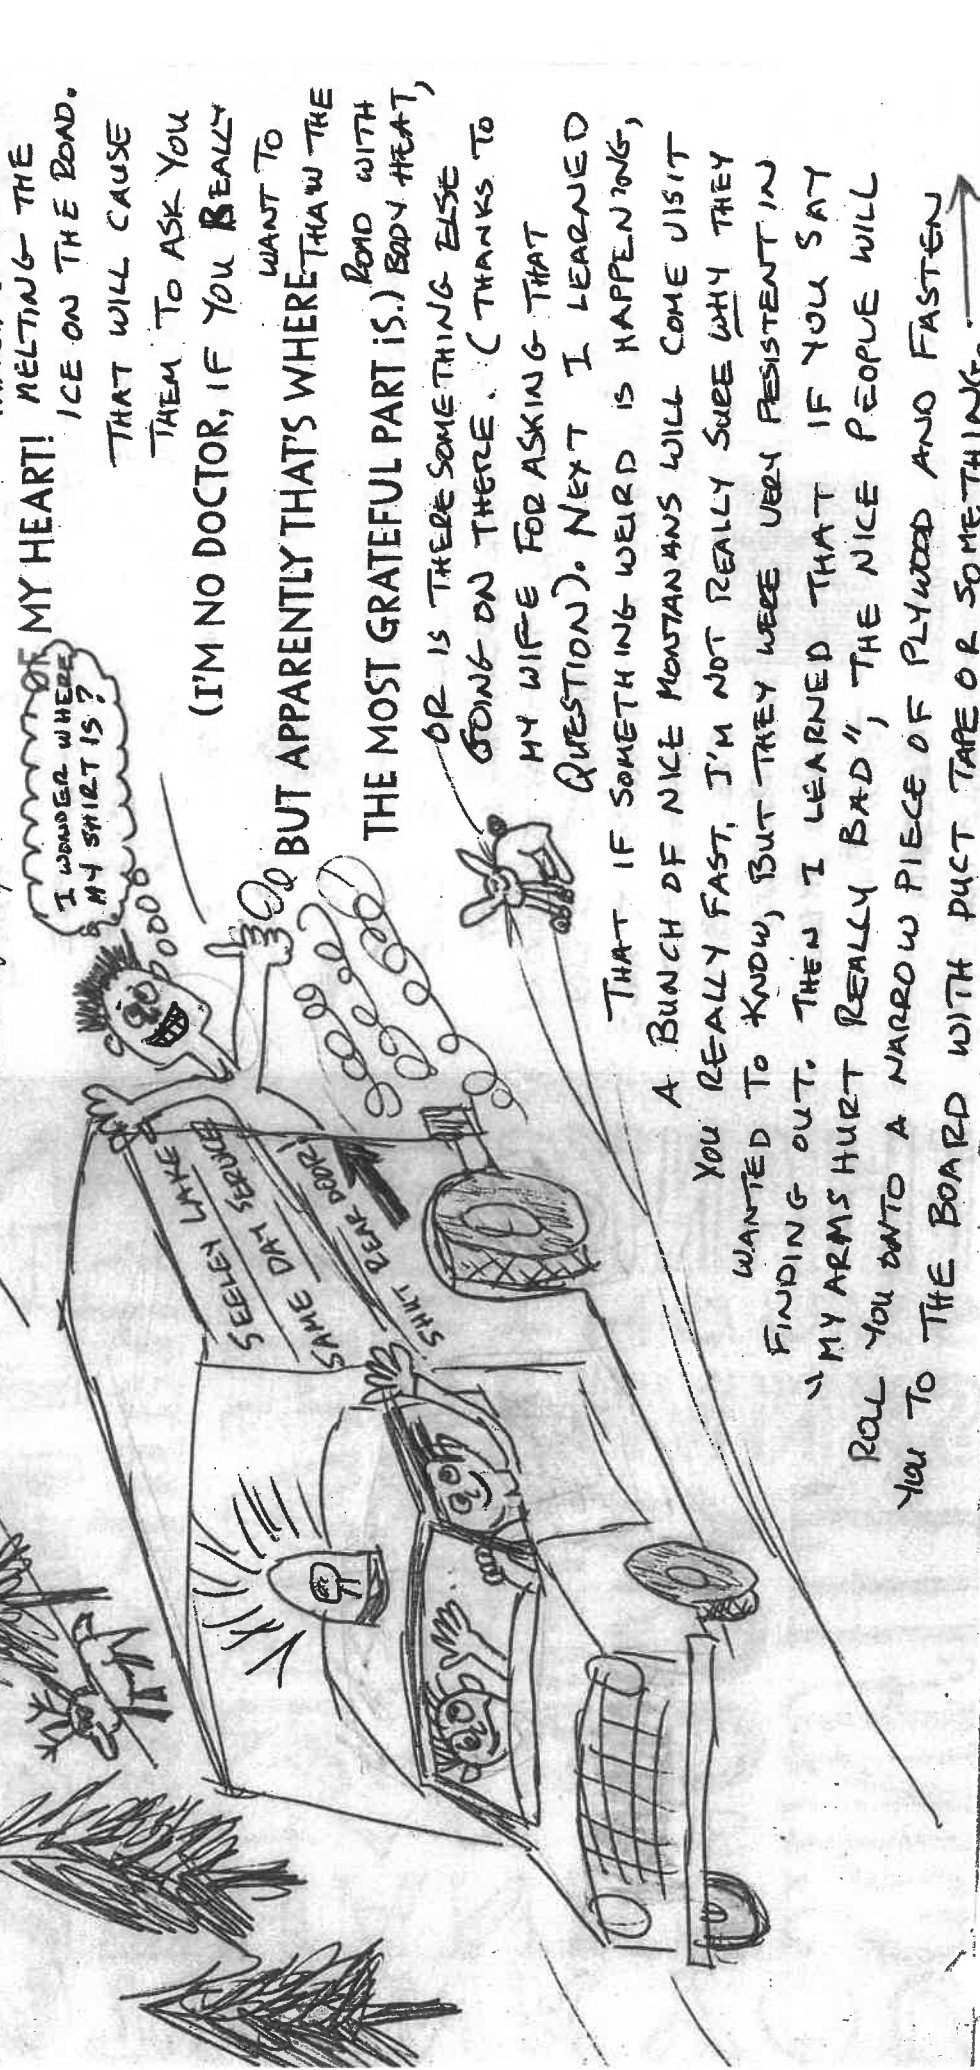 MELTING THE
ICE ON THE ROAD.
OF MY HEART!
I WONDER WHERE
MY SHIRT IS?
THAT WILL CAUSE
THEM TO ASK YOU
(I'M NO DOCTOR, IF YOU REALLY
WANT TO
BUT APPARENTLY THAT'S WHERE THAW THE
ROAD WITH
THE MOST GRATEFUL PART IS.) BODY HEAT,
OR IS THERE SOMETHING ELSE
GOING ON THERE. (THANKS TO
MY WIFE FOR ASKING THAT
QUESTION). NEXT I LEARNED
THAT IF SOMETHING WEIRD IS HAPPENING,
A BUNCH OF NICE MONTANANS WILL COME VISIT
YOU REALLY FAST. I'M NOT REALLY SURE WHY THEY
WANTED TO KNOW, BUT THEY WERE VERY PESISTENT IN
FINDING OUT. THEN I LEARNED THAT IF YOU SAY
"MY ARMS HURT REALLY BAD", THE NICE PEOPLE WILL
ROLL YOU ONTO A NARROW PIECE OF PLYWOOD AND FASTEN
YOU TO THE BOARD WITH DUCT TAPE OR SOMETHING.
SEELEY LAKE
SAME DAM SERVICE
SHUT REAR DOOR!